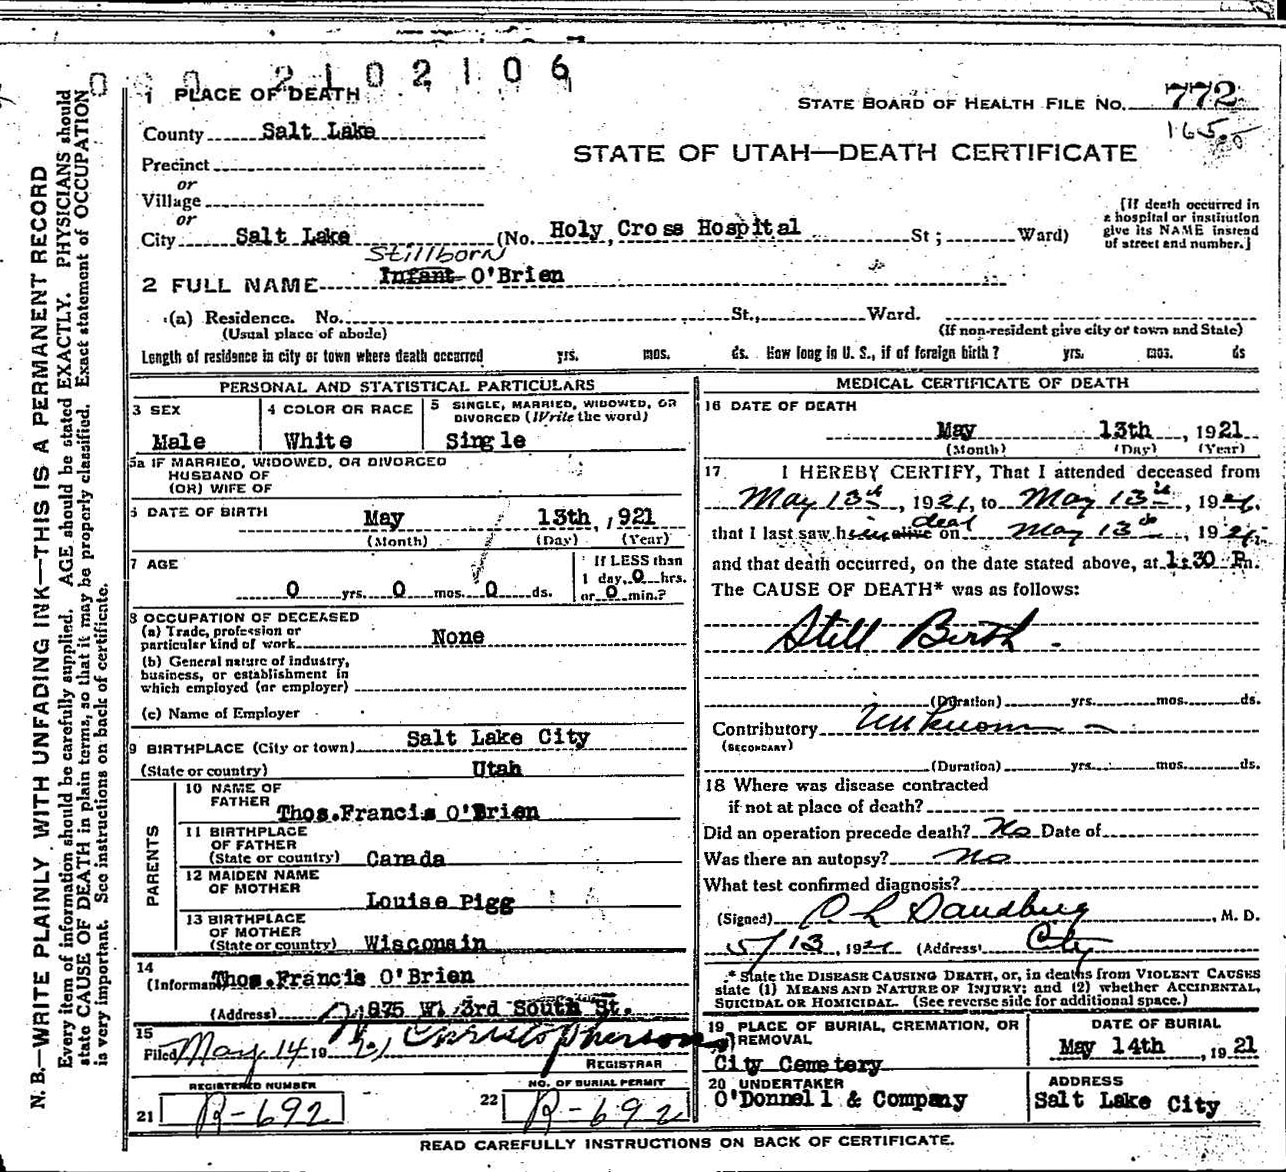 2102106
1 PLACE OF DEATH
STATE BOARD OF HEALTH FILE NO. 772
165
County Salt Lake
STATE OF UTAH—DEATH CERTIFICATE
Precinct
or
Village
or
City Salt Lake (No. Holy Cross Hospital St; Ward)
[If death occurred in
a hospital or institution
give its NAME instead
of street and number.]
Stillborn
2 FULL NAME Infant O'Brien
(a) Residence. No. St., Ward.
(Usual place of abode) (If non-resident give city or town and State)
Length of residence in city or town where death occurred yrs. mos. ds. How long in U. S., if of foreign birth? yrs. mos. ds
PERSONAL AND STATISTICAL PARTICULARS
3 SEX
Male
4 COLOR OR RACE
White
5 SINGLE, MARRIED, WIDOWED, OR
DIVORCED (Write the word)
Single
5a IF MARRIED, WIDOWED, OR DIVORCED
HUSBAND OF
(OR) WIFE OF
6 DATE OF BIRTH
May 13th, , 921
(Month) (Day) (Year)
7 AGE
0 yrs. 0 mos. 0 ds.
If LESS than
1 day, 0 hrs.
or 0 min.?
8 OCCUPATION OF DECEASED
(a) Trade, profession or
particular kind of work None
(b) General nature of industry,
business, or establishment in
which employed (or employer)
(c) Name of Employer
9 BIRTHPLACE (City or town) Salt Lake City
(State or country) Utah
PARENTS
10 NAME OF
FATHER
Thos.Francis O'Brien
11 BIRTHPLACE
OF FATHER
(State or country) Canada
12 MAIDEN NAME
OF MOTHER
Louise Pigg
13 BIRTHPLACE
OF MOTHER
(State or country) Wisconsin
14
(Informant Thos.Francis O'Brien
(Address) 875 W. 3rd South St.
15
Filed May 14 19 21 Christopherson
REGISTRAR
REGISTERED NUMBER
21 R-692
NO. OF BURIAL PERMIT
22 R-692
MEDICAL CERTIFICATE OF DEATH
16 DATE OF DEATH
May 13th , 1921
(Month) (Day) (Year)
17 I HEREBY CERTIFY, That I attended deceased from
May 13th, 1921, to May 13th, 1921.
that I last saw him alive dead on May 13th, 1921.
and that death occurred, on the date stated above, at 1:30 P.m.
The CAUSE OF DEATH* was as follows:
Still Birth.
(Duration) yrs. mos. ds.
Contributory Unknown
(SECONDARY)
(Duration) yrs. mos. ds.
18 Where was disease contracted
if not at place of death?
Did an operation precede death? No Date of
Was there an autopsy? No
What test confirmed diagnosis?
(Signed) O L Sandberg, M. D.
5/13, 1921 (Address) City
* State the DISEASE CAUSING DEATH, or, in deaths from VIOLENT CAUSES
state (1) MEANS AND NATURE OF INJURY; and (2) whether ACCIDENTAL,
SUICIDAL OR HOMICIDAL. (See reverse side for additional space.)
19 PLACE OF BURIAL, CREMATION, OR
REMOVAL
City Cemetery
DATE OF BURIAL
May 14th , 19 21
20 UNDERTAKER
O'Donnell & Company
ADDRESS
Salt Lake City
READ CAREFULLY INSTRUCTIONS ON BACK OF CERTIFICATE.
N. B.—WRITE PLAINLY, WITH UNFADING INK—THIS IS A PERMANENT RECORD
Every item of information should be carefully supplied. AGE should be stated EXACTLY. PHYSICIANS should
state CAUSE OF DEATH in plain terms, so that it may be properly classified. Exact statement of OCCUPATION
is very important. See instructions on back of certificate.